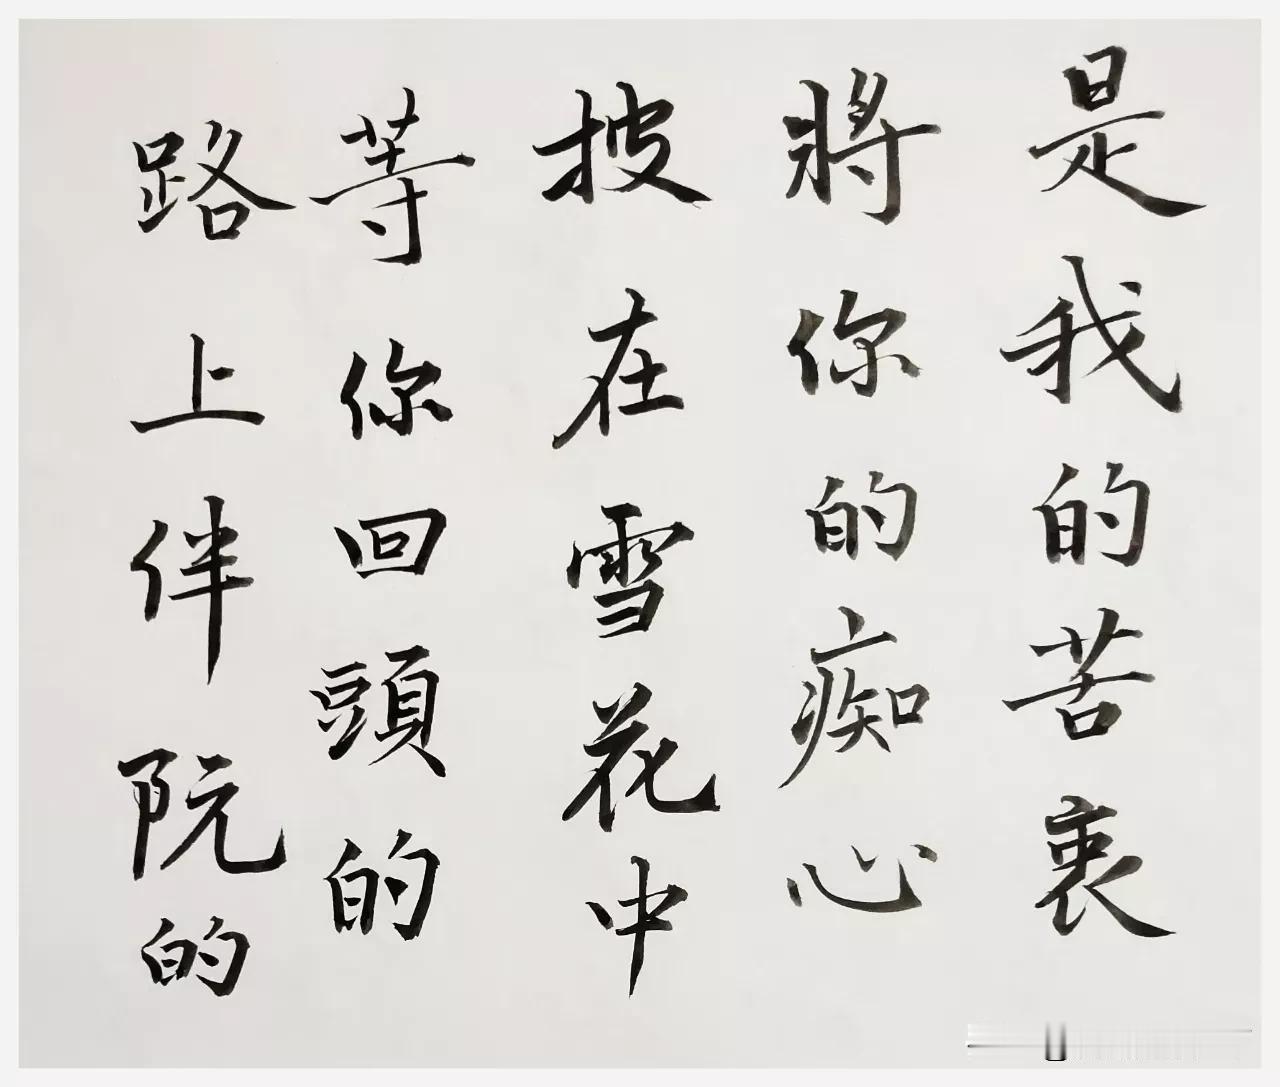 是我的苦衷
將你的痴心
披在雪花中
等你回頭的
路上伴阮的